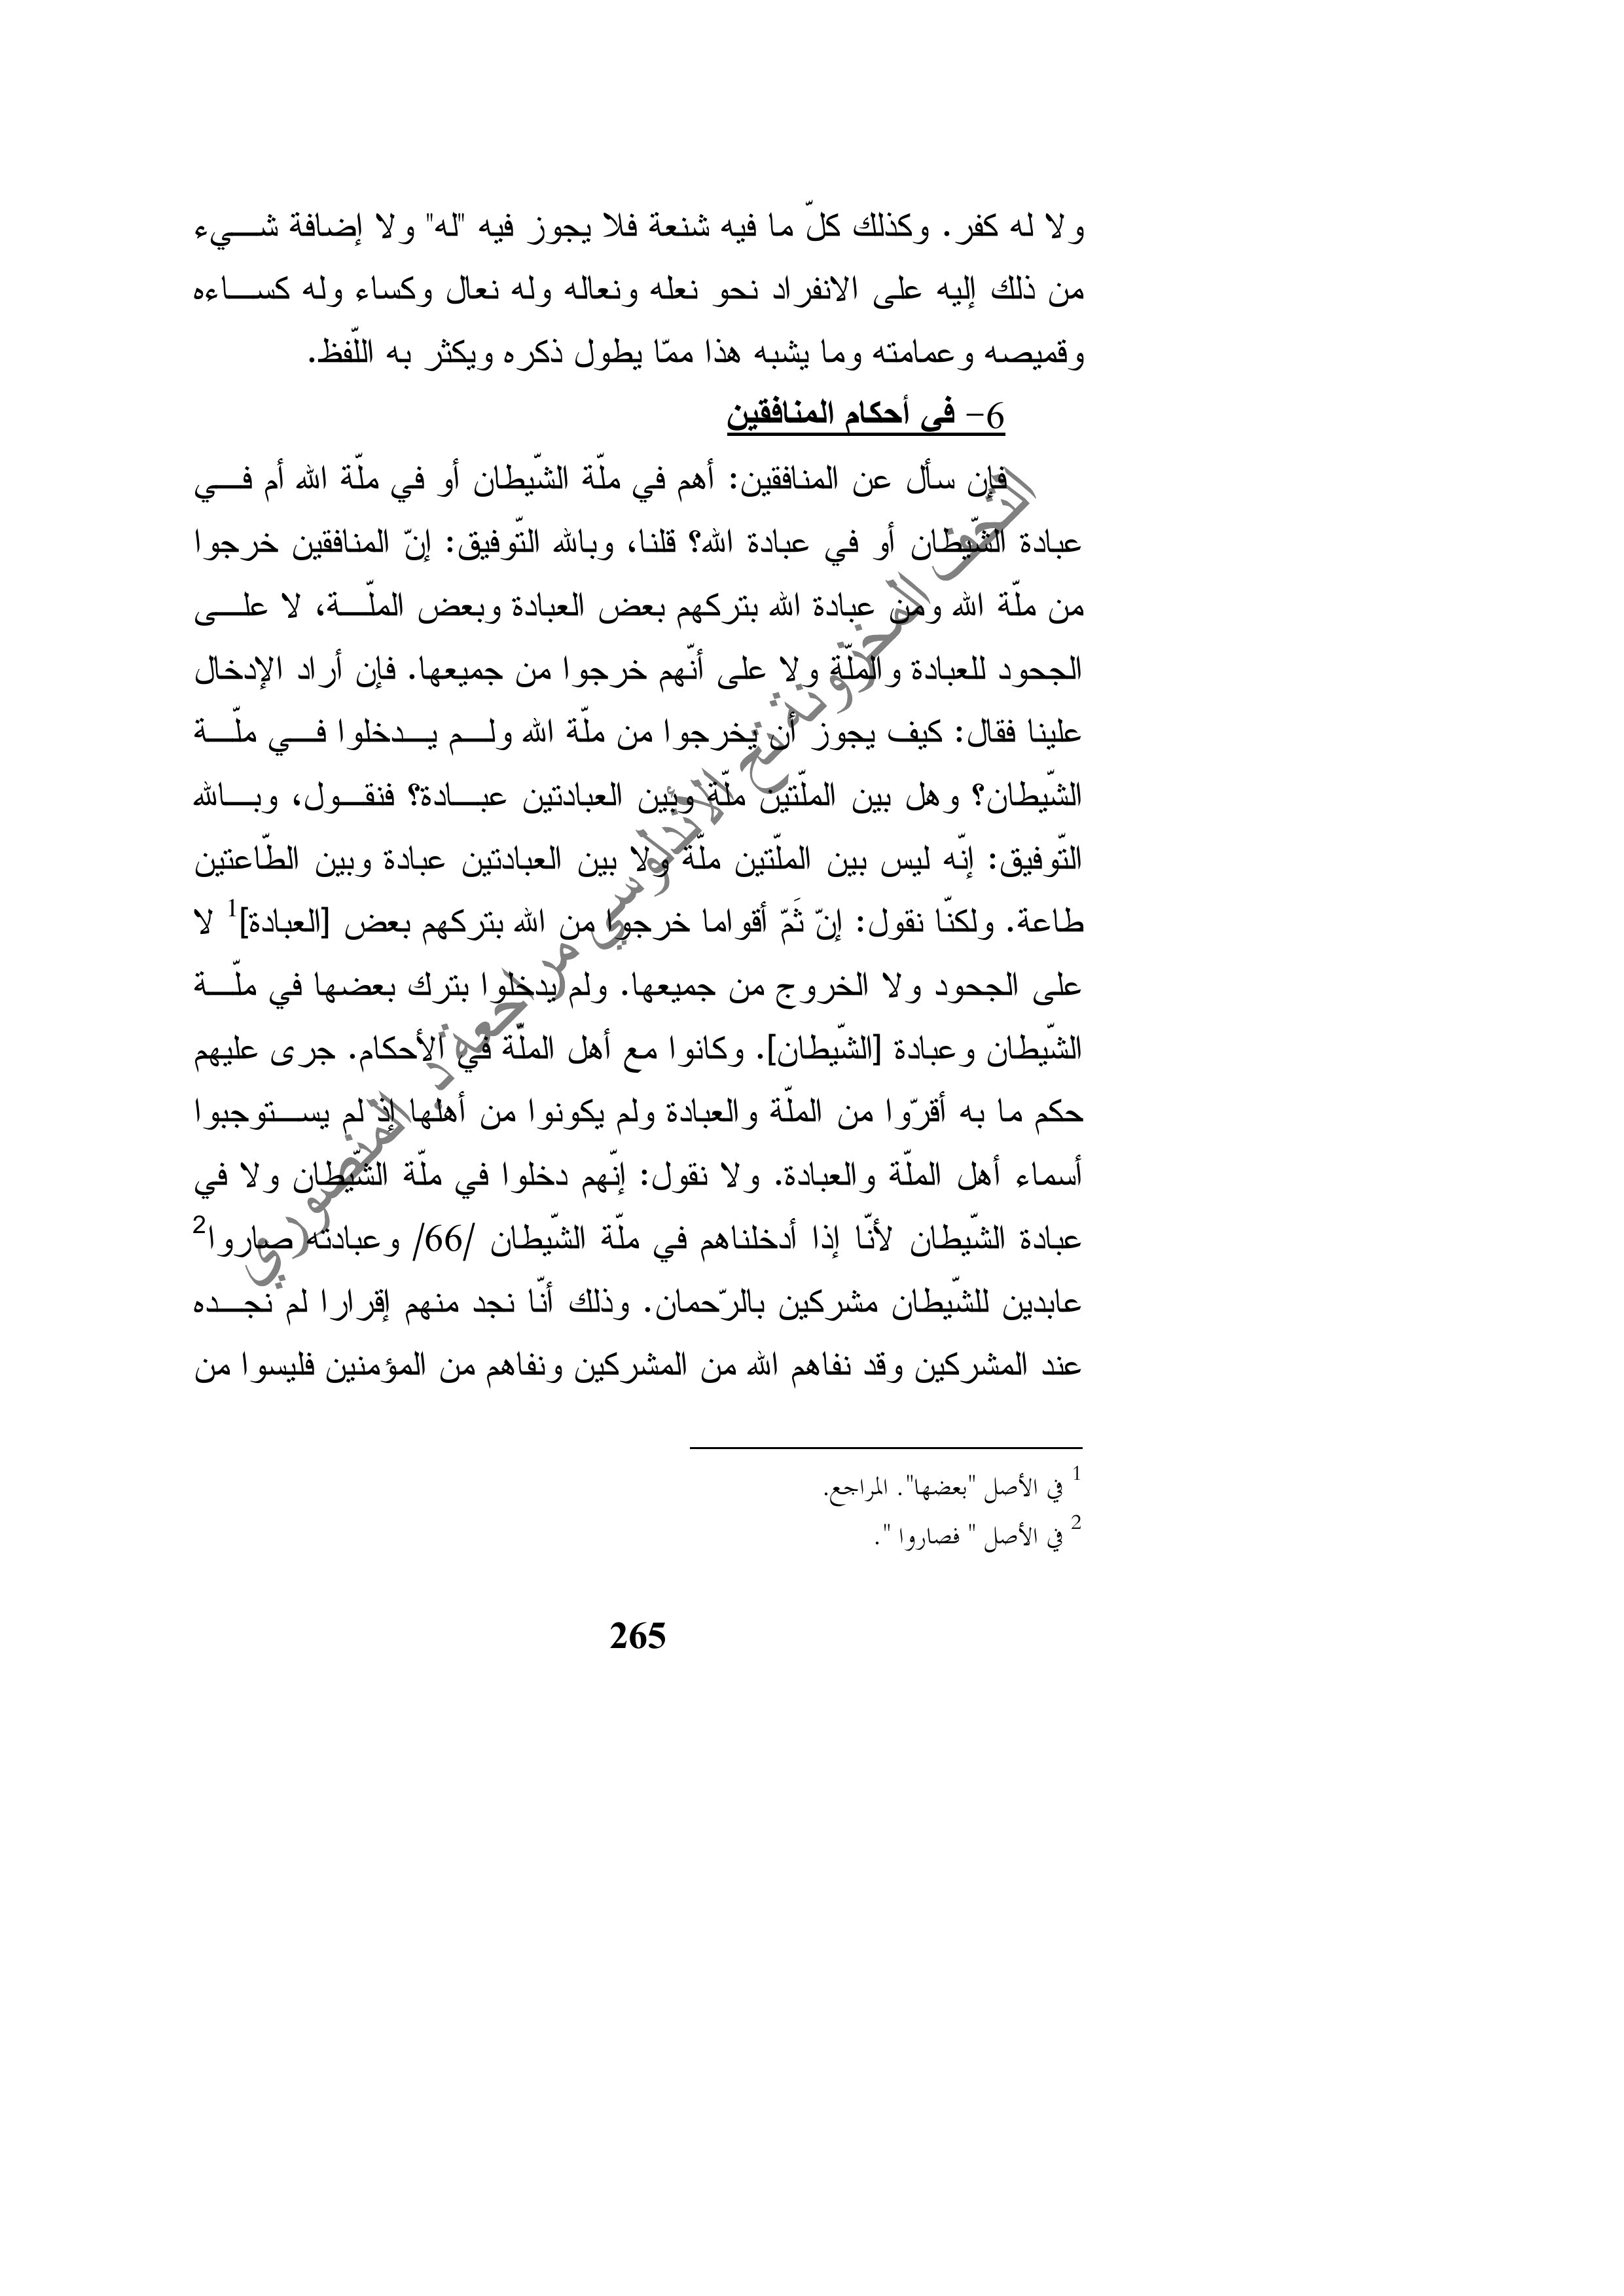 ولا له كفر. وكذلك كلّ ما فيه شنعة فلا يجوز فيه "له" ولا إضافة شيء
من ذلك إليه على الانفراد نحو نعله ونعاله وله نعال وكساء وله كساءه
وقميصه وعمامته وما يشبه هذا ممّا يطول ذكره ويكثر به اللّفظ.
6- في أحكام المنافقين
فإن سأل عن المنافقين: أهم في ملّة الشّيطان أو في ملّة الله أم في
عبادة الشّيطان أو في عبادة الله؟ قلنا، وبالله التّوفيق: إنّ المنافقين خرجوا
من ملّة الله ومن عبادة الله بتركهم بعض العبادة وبعض الملّة، لا على
الجحود للعبادة والملّة ولا على أنّهم خرجوا من جميعها. فإن أراد الإدخال
علينا فقال: كيف يجوز أن يخرجوا من ملّة الله ولم يدخلوا في ملّة
الشّيطان؟ وهل بين الملّتين ملّة وبين العبادتين عبادة؟ فنقول، وبالله
التّوفيق: إنّه ليس بين الملّتين ملّة ولا بين العبادتين عبادة وبين الطّاعتين
طاعة. ولكنّا نقول: إنّ ثَمّ أقواما خرجوا من الله بتركهم بعض [العبادة]1 لا
على الجحود ولا الخروج من جميعها. ولم يدخلوا بترك بعضها في ملّة
الشّيطان وعبادة [الشّيطان]. وكانوا مع أهل الملّة في الأحكام. جرى عليهم
حكم ما به أقرّوا من الملّة والعبادة ولم يكونوا من أهلها إذ لم يستوجبوا
أسماء أهل الملّة والعبادة. ولا نقول: إنّهم دخلوا في ملّة الشّيطان ولا في
عبادة الشّيطان لأنّا إذا أدخلناهم في ملّة الشّيطان /66/ وعبادته صاروا2
عابدين للشّيطان مشركين بالرّحمان. وذلك أنّا نجد منهم إقرارا لم نجده
عند المشركين وقد نفاهم الله من المشركين ونفاهم من المؤمنين فليسوا من
1 في الأصل "بعضها". المراجع.
2 في الأصل " فصاروا ".
265
التحف المخزونة تح الأندلوسي مراجعة د. المنصوري